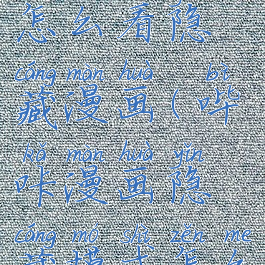 怎么看隐
cáng màn huà bì
藏漫画(哔
kā màn huà yǐn
咔漫画隐
cáng mó shì zěn me
藏模式怎么